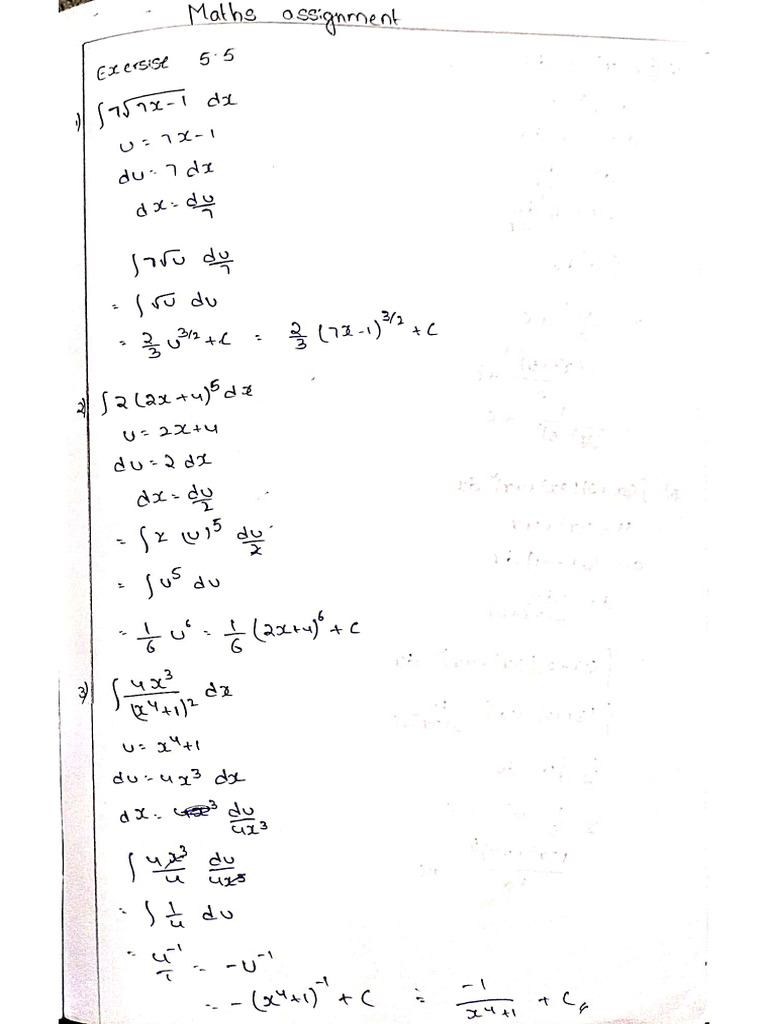 Maths assignment
Exersise 5.5
1) ∫7√7x-1 dx
u = 7x-1
du = 7 dx
dx = du/7
∫7√u du/7
= ∫√u du
= 2/3 u^3/2 + C = 2/3 (7x-1)^3/2 + C
2) ∫2(2x+4)^5 dx
u = 2x+4
du = 2 dx
dx = du/2
= ∫2 (u)^5 du/2
= ∫u^5 du
= 1/6 u^6 = 1/6 (2x+4)^6 + C
3) ∫ 4x^3/(x^4+1)^2 dx
u = x^4+1
du = 4x^3 dx
dx = du/4x^3
∫ 4x^3/u du/4x^3
= ∫ 1/u du
= u^-1/1 = -u^-1
= -(x^4+1)^-1 + C = -1/x^4+1 + C